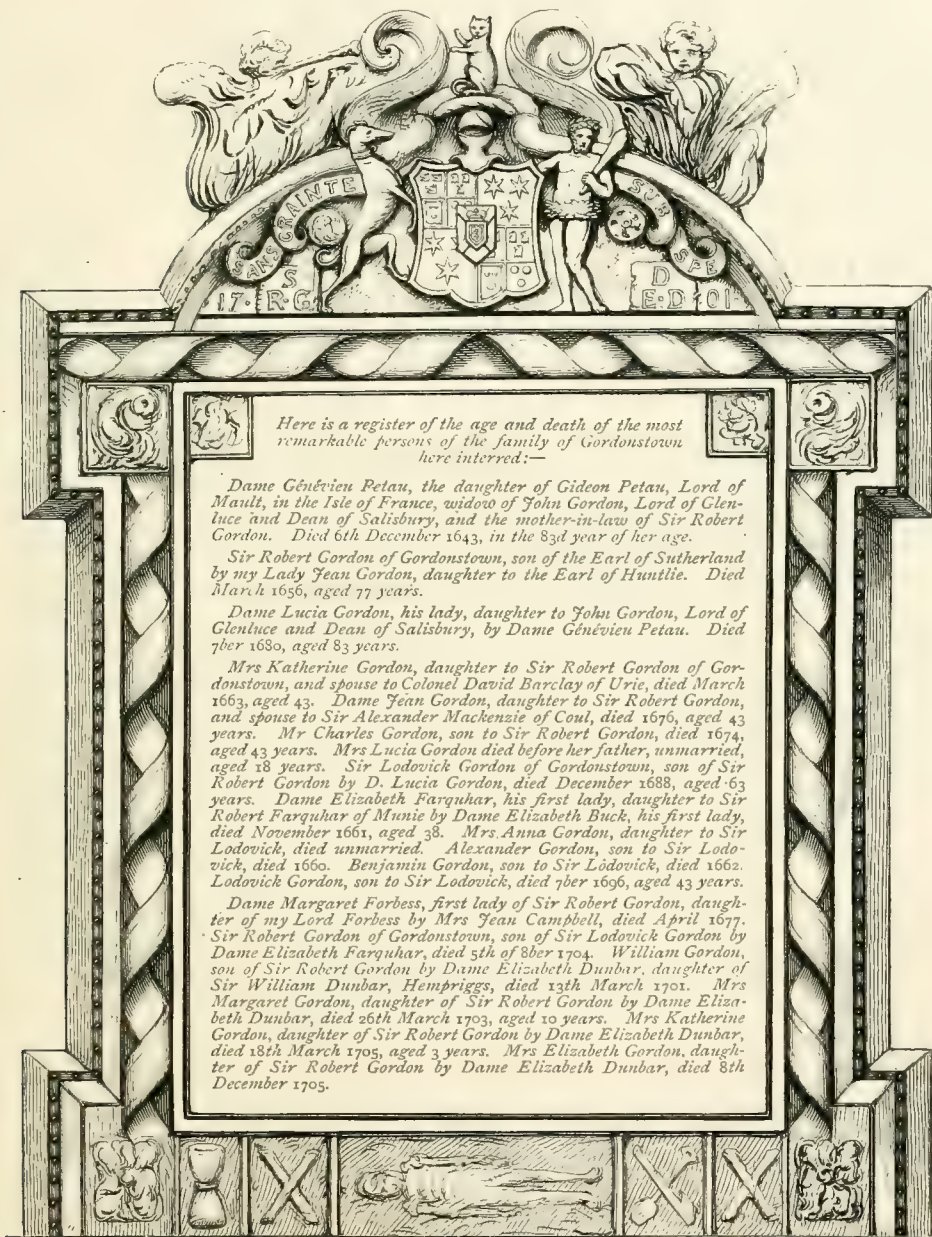 SANS CRAINTE
SUB SPE
S
17·R·G
D
E·D·01·
Here is a register of the age and death of the most
remarkable persons of the family of Gordonstown
here interred:—
Dame Génévieu Petau, the daughter of Gideon Petau, Lord of
Mault, in the Isle of France, widow of John Gordon, Lord of Glen-
luce and Dean of Salisbury, and the mother-in-law of Sir Robert
Gordon. Died 6th December 1643, in the 83d year of her age.
Sir Robert Gordon of Gordonstown, son of the Earl of Sutherland
by my Lady Jean Gordon, daughter to the Earl of Huntlie. Died
March 1656, aged 77 years.
Dame Lucia Gordon, his lady, daughter to John Gordon, Lord of
Glenluce and Dean of Salisbury, by Dame Génévieu Petau. Died
7ber 1680, aged 83 years.
Mrs Katherine Gordon, daughter to Sir Robert Gordon of Gor-
donstown, and spouse to Colonel David Barclay of Urie, died March
1663, aged 43. Dame Jean Gordon, daughter to Sir Robert Gordon,
and spouse to Sir Alexander Mackenzie of Coul, died 1676, aged 43
years. Mr Charles Gordon, son to Sir Robert Gordon, died 1674,
aged 43 years. Mrs Lucia Gordon died before her father, unmarried,
aged 18 years. Sir Lodovick Gordon of Gordonstown, son of Sir
Robert Gordon by D. Lucia Gordon, died December 1688, aged 63
years. Dame Elizabeth Farquhar, his first lady, daughter to Sir
Robert Farquhar of Munie by Dame Elizabeth Buck, his first lady,
died November 1661, aged 38. Mrs Anna Gordon, daughter to Sir
Lodovick, died unmarried. Alexander Gordon, son to Sir Lodo-
vick, died 1660. Benjamin Gordon, son to Sir Lodovick, died 1662.
Lodovick Gordon, son to Sir Lodovick, died 7ber 1696, aged 43 years.
Dame Margaret Forbess, first lady of Sir Robert Gordon, daugh-
ter of my Lord Forbess by Mrs Jean Campbell, died April 1677.
Sir Robert Gordon of Gordonstown, son of Sir Lodovick Gordon by
Dame Elizabeth Farquhar, died 5th of 8ber 1704. William Gordon,
son of Sir Robert Gordon by Dame Elizabeth Dunbar, daughter of
Sir William Dunbar, Hempriggs, died 13th March 1701. Mrs
Margaret Gordon, daughter of Sir Robert Gordon by Dame Eliza-
beth Dunbar, died 26th March 1703, aged 10 years. Mrs Katherine
Gordon, daughter of Sir Robert Gordon by Dame Elizabeth Dunbar,
died 18th March 1705, aged 3 years. Mrs Elizabeth Gordon, daugh-
ter of Sir Robert Gordon by Dame Elizabeth Dunbar, died 8th
December 1705.